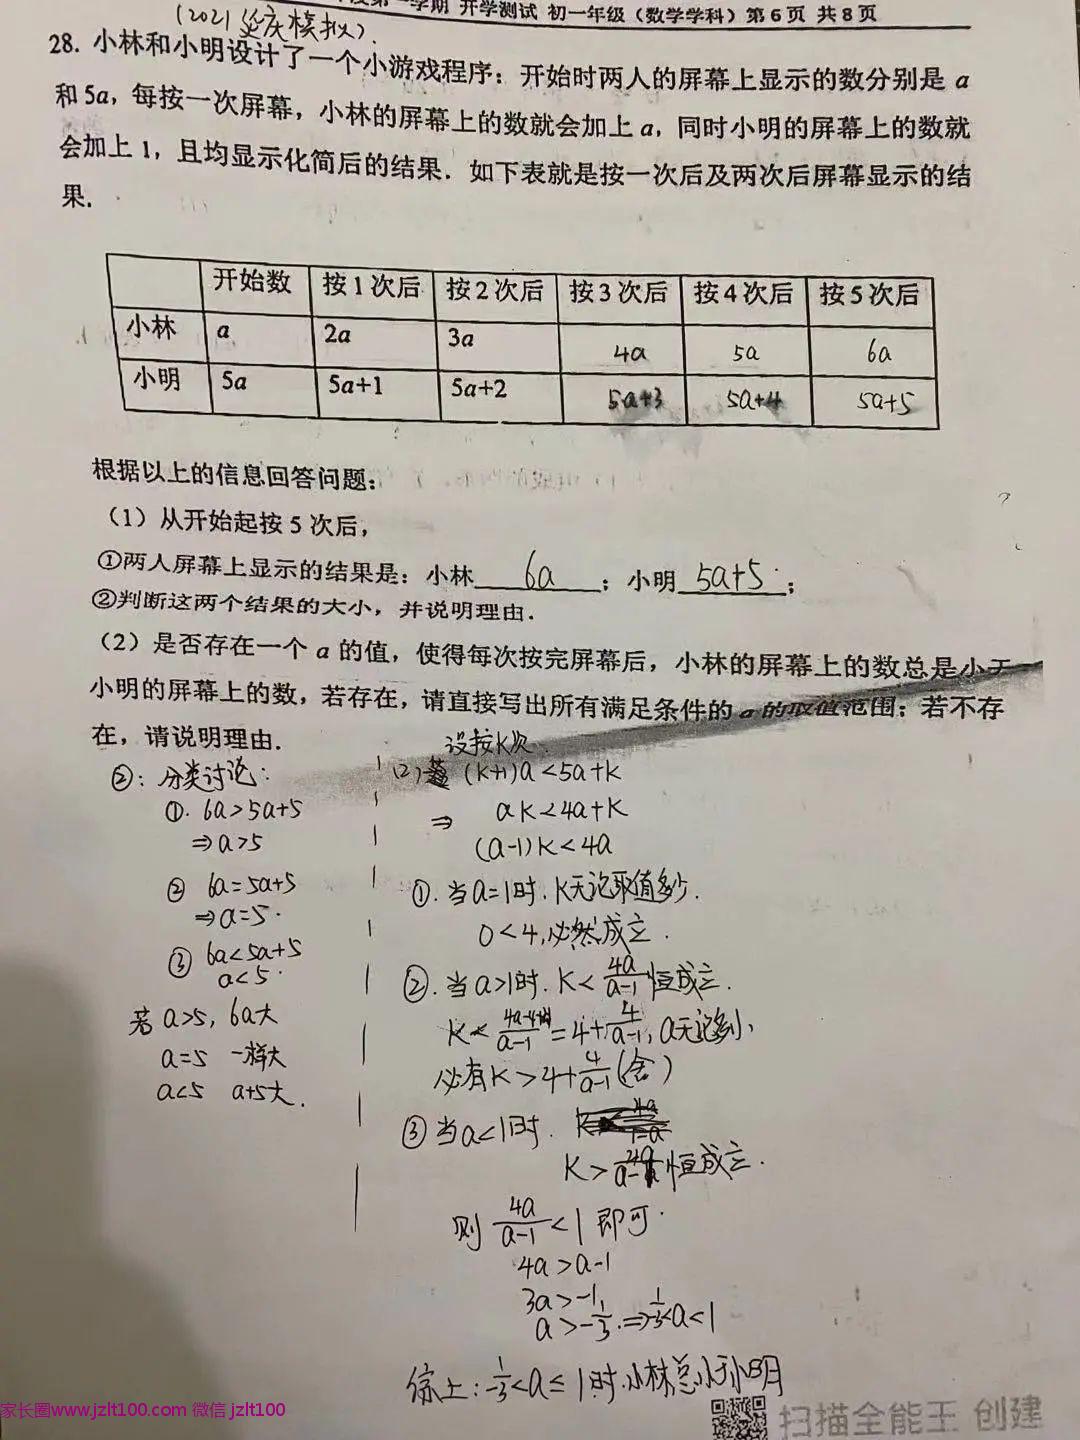 (2021延庆模拟)
学期 开学测试 初一年级（数学学科）第 6 页 共 8 页
28. 小林和小明设计了一个小游戏程序：开始时两人的屏幕上显示的数分别是 a
和 5a，每按一次屏幕，小林的屏幕上的数就会加上 a，同时小明的屏幕上的数就
会加上 1，且均显示化简后的结果．如下表就是按一次后及两次后屏幕显示的结
果．
开始数 按 1 次后 按 2 次后 按 3 次后 按 4 次后 按 5 次后
小林 a 2a 3a 4a 5a 6a
小明 5a 5a+1 5a+2 5a+3 5a+4 5a+5
根据以上的信息回答问题：
（1）从开始起按 5 次后，
①两人屏幕上显示的结果是：小林 6a ；小明 5a+5 ；
②判断这两个结果的大小，并说明理由．
（2）是否存在一个 a 的值，使得每次按完屏幕后，小林的屏幕上的数总是小于
小明的屏幕上的数，若存在，请直接写出所有满足条件的 a 的取值范围；若不存
在，请说明理由．
②: 分类讨论:
①. 6a>5a+5
⇒a>5
② 6a=5a+5
⇒a=5.
③ 6a<5a+5
a<5.
若 a>5, 6a大
a=5 一样大
a<5 a+5大.
设按K次.
(2) (K+1)a<5a+K
⇒ aK<4a+K
(a-1)K<4a
①. 当a=1时. K无论取值多少.
0<4, 必然成立.
②. 当a>1时. K< 4a/(a-1) 恒成立.
=4+4/(a-1), a无论多小,
必有K>4+4/(a-1) (舍)
③ 当a<1时.
K> 恒成立.
则 4a/(a-1) <1 即可.
4a>a-1
3a>-1,
a>-1/3. ⇒-1/3<a<1
综上: -1/3<a≤1时. 小林总小于小明
家长圈www.jzlt100.com 微信 jzlt100
扫描全能王 创建